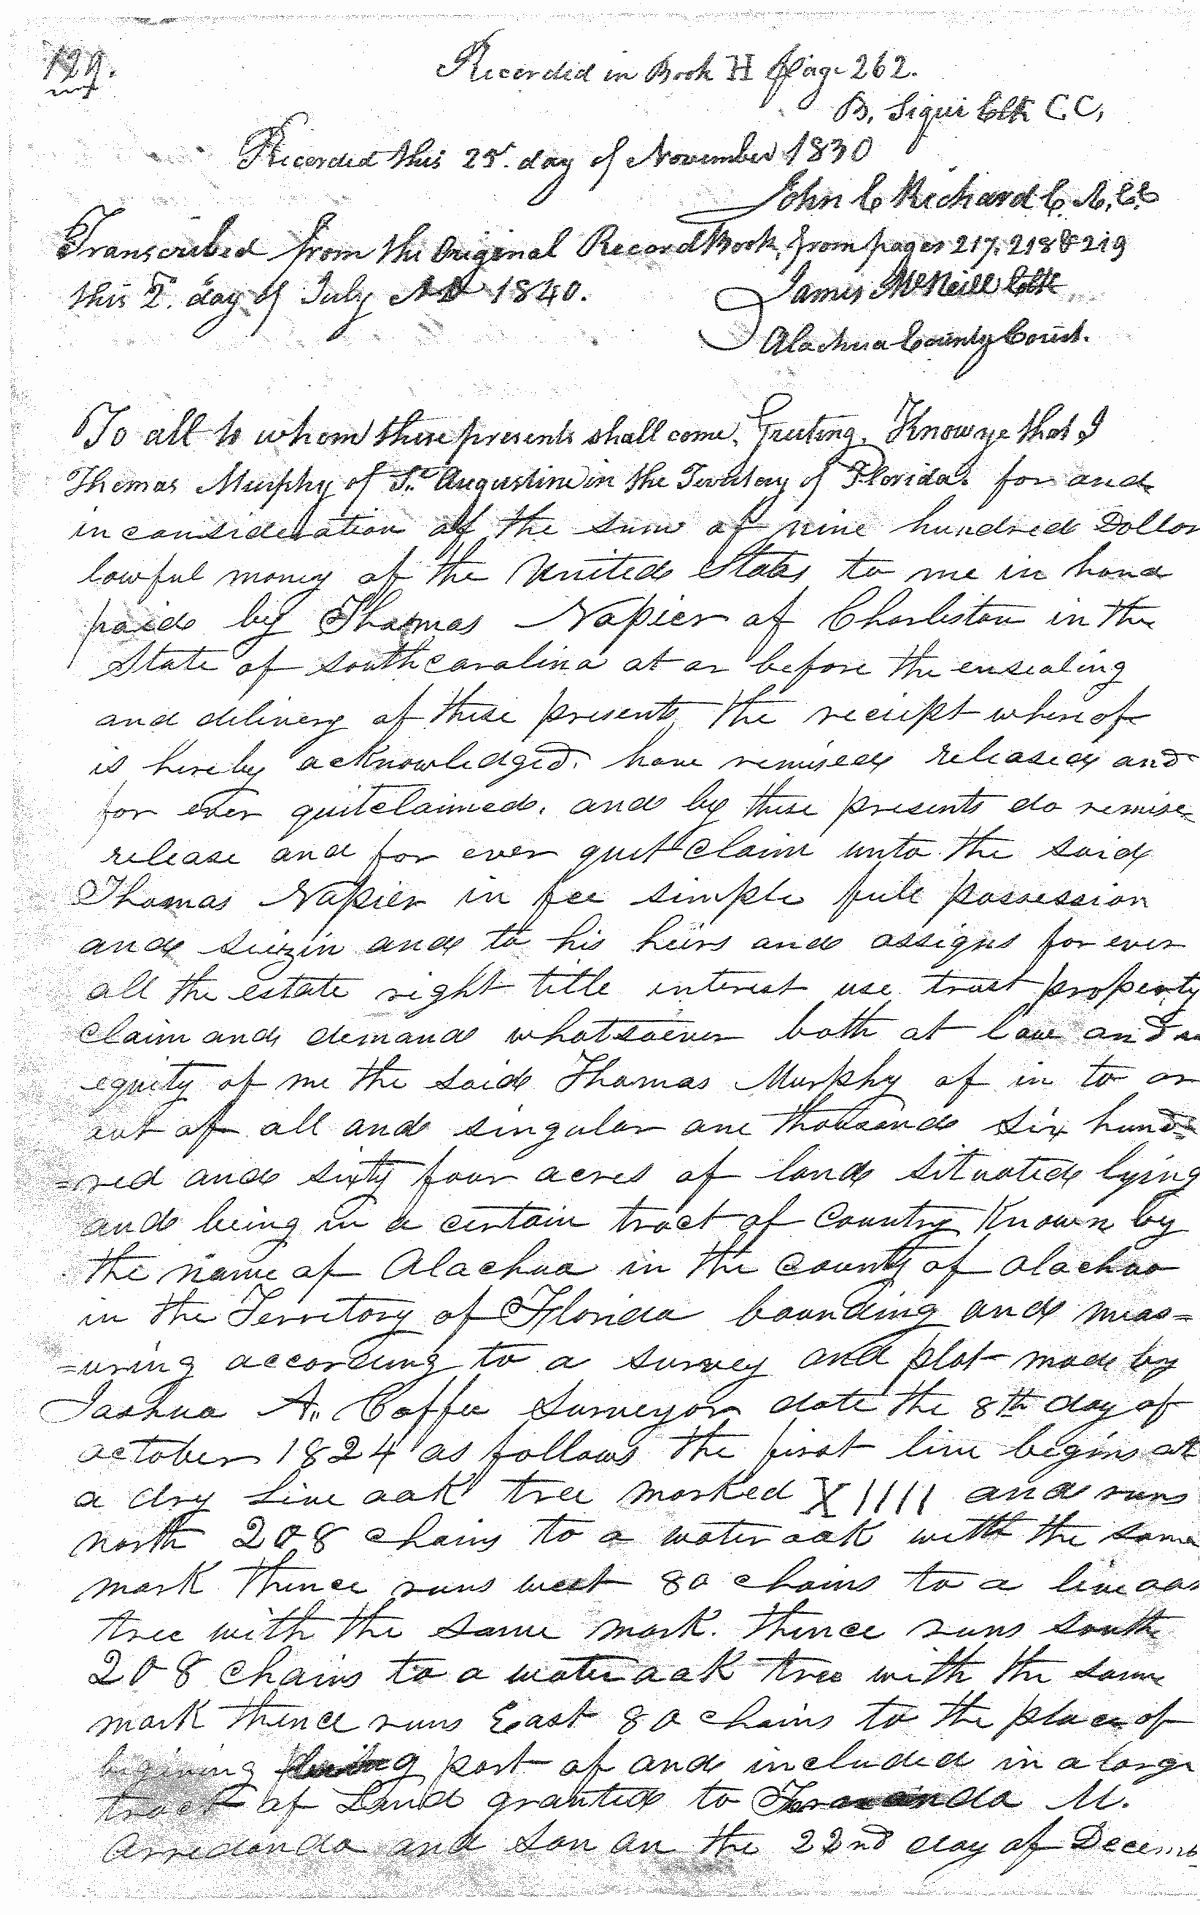 129.
Recorded in Book H Page 262.
B. Sigui Clk C.C,
Recorded this 25. day of November 1830
John C Richard C. A. C.C
Transcribed from the Original Record Book, from pages 217. 218 & 219
this 2. day of July A D 1840.
James McNeill Clk
Alachua County Court.
To all to whom these presents shall come, Greeting. Know ye that I
Thomas Murphy of St. Augustine in the Territory of Florida. for and
in consideration of the sum of nine hundred Dollars
lawful money of the United States to me in hand
paid by Thomas Napier of Charleston in the
State of South carolina at or before the ensealing
and delivery of these presents, the receipt whereof
is hereby acknowledged. have remised released and
for ever quitclaimed. and by these presents do remise
release and for ever quit claim unto the said
Thomas Napier in fee simple full possession
and siezin and to his heirs and assigns for ever
all the estate right title interest use trust property
claim and demand whatsoever both at law and in
equity of me the said Thomas Murphy of in to or
out of all and singular one thousand six hund=
=red and sixty four acres of land situated lying
and being in a certain tract of Country Known by
the name of Alachua in the county of alachua
in the Territory of Florida bounding and meas=
=uring according to a survey and plat made by
Joshua A,, Coffee Surveyor date the 8th day of
october 1824 as follows the first line begins at
a dry Live oak tree marked X IIII and runs
north 208 chains to a water oak with the same
mark thence runs west 80 chains to a live oak
tree with the same mark. thence runs south
208 chains to a water oak tree with the same
mark thence runs East 80 chains to the place of
begining being part of and included in a large
tract of Land granted to M.
Arredondo and Son on the 22nd day of Decemb